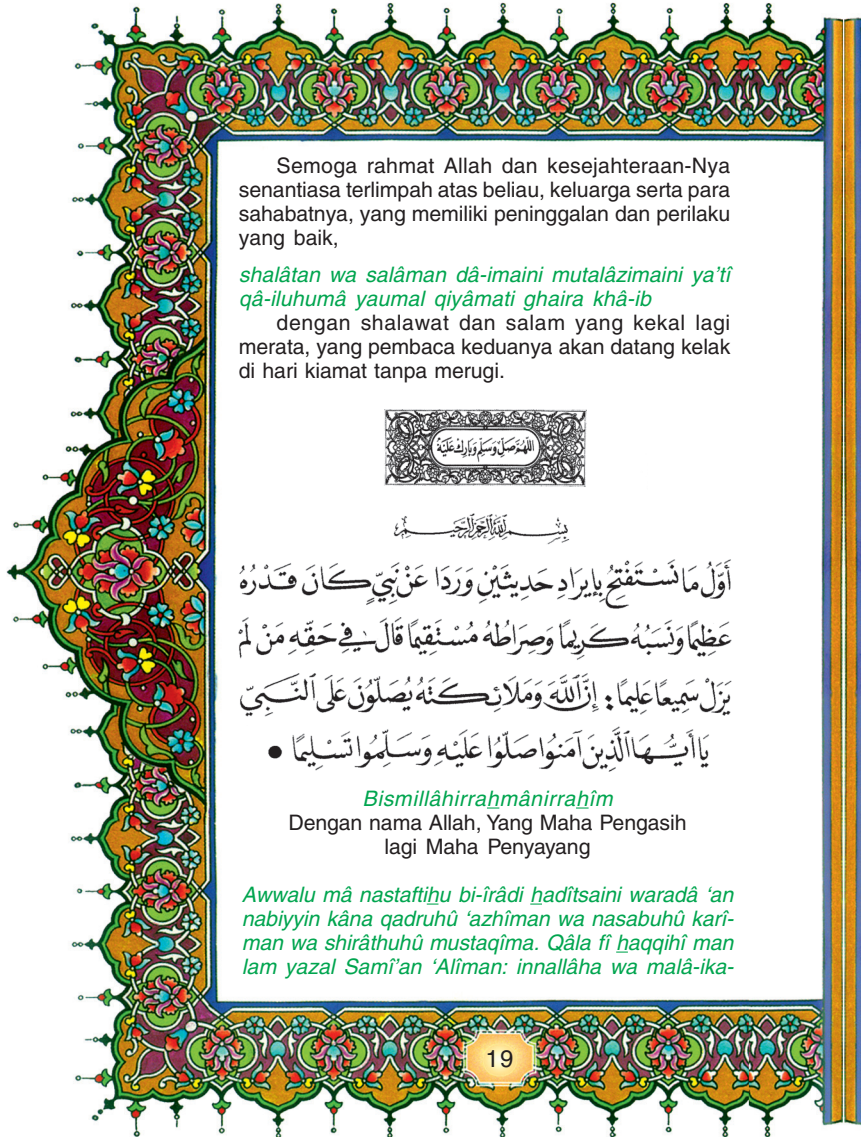 Semoga rahmat Allah dan kesejahteraan-Nya
senantiasa terlimpah atas beliau, keluarga serta para
sahabatnya, yang memiliki peninggalan dan perilaku
yang baik,
shalâtan wa salâman dâ-imaini mutalâzimaini ya'tî
qâ-iluhumâ yaumal qiyâmati ghaira khâ-ib
dengan shalawat dan salam yang kekal lagi
merata, yang pembaca keduanya akan datang kelak
di hari kiamat tanpa merugi.
اللهم صل وسلم وبارك عليه
بِسْمِ اللهِ الرَّحْمٰنِ الرَّحِيْمِ
أَوَّلُ مَا نَسْتَفْتِحُ بِإِيرَادِ حَدِيثَيْنِ وَرَدَا عَنْ نَبِيٍّ كَانَ قَدْرُهُ
عَظِيمًا وَنَسَبُهُ كَرِيمًا وَصِرَاطُهُ مُسْتَقِيمًا قَالَ فِي حَقِّهِ مَنْ لَمْ
يَزَلْ سَمِيعًا عَلِيمًا: إِنَّ اللَّهَ وَمَلَائِكَتَهُ يُصَلُّونَ عَلَى النَّبِيِّ
يَا أَيُّهَا الَّذِينَ آمَنُوا صَلُّوا عَلَيْهِ وَسَلِّمُوا تَسْلِيمًا ●
Bismillâhirraẖmânirraẖîm
Dengan nama Allah, Yang Maha Pengasih
lagi Maha Penyayang
Awwalu mâ nastaftiẖu bi-îrâdi ẖadîtsaini waradâ ‘an
nabiyyin kâna qadruhû ‘azhîman wa nasabuhû karî-
man wa shirâthuhû mustaqîma. Qâla fî ẖaqqihî man
lam yazal Samî’an ‘Alîman: innallâha wa malâ-ika-
19